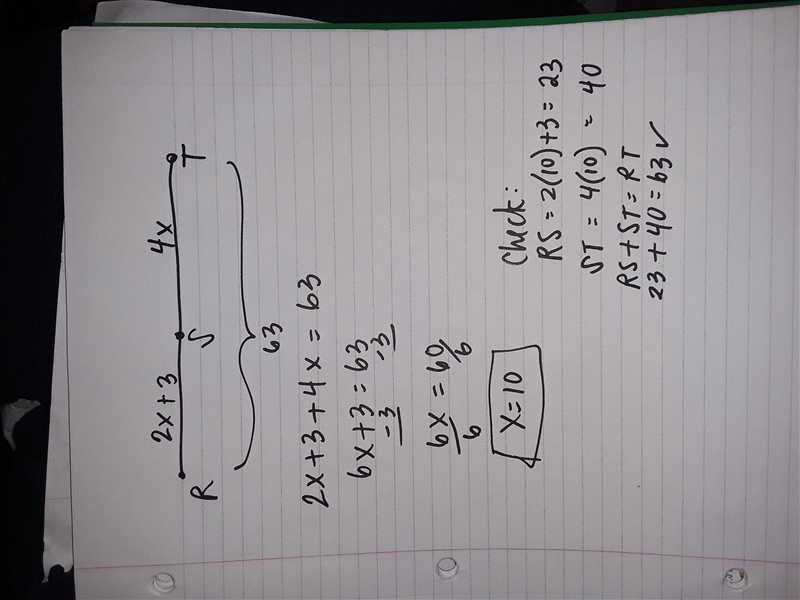 2x+3 4x
R S T
63
2x+3+4x=63
6x+3=63
-3 -3
6x=60
6 6
x=10
Check:
RS=2(10)+3=23
ST=4(10)=40
RS+ST=RT
23+40=63✓